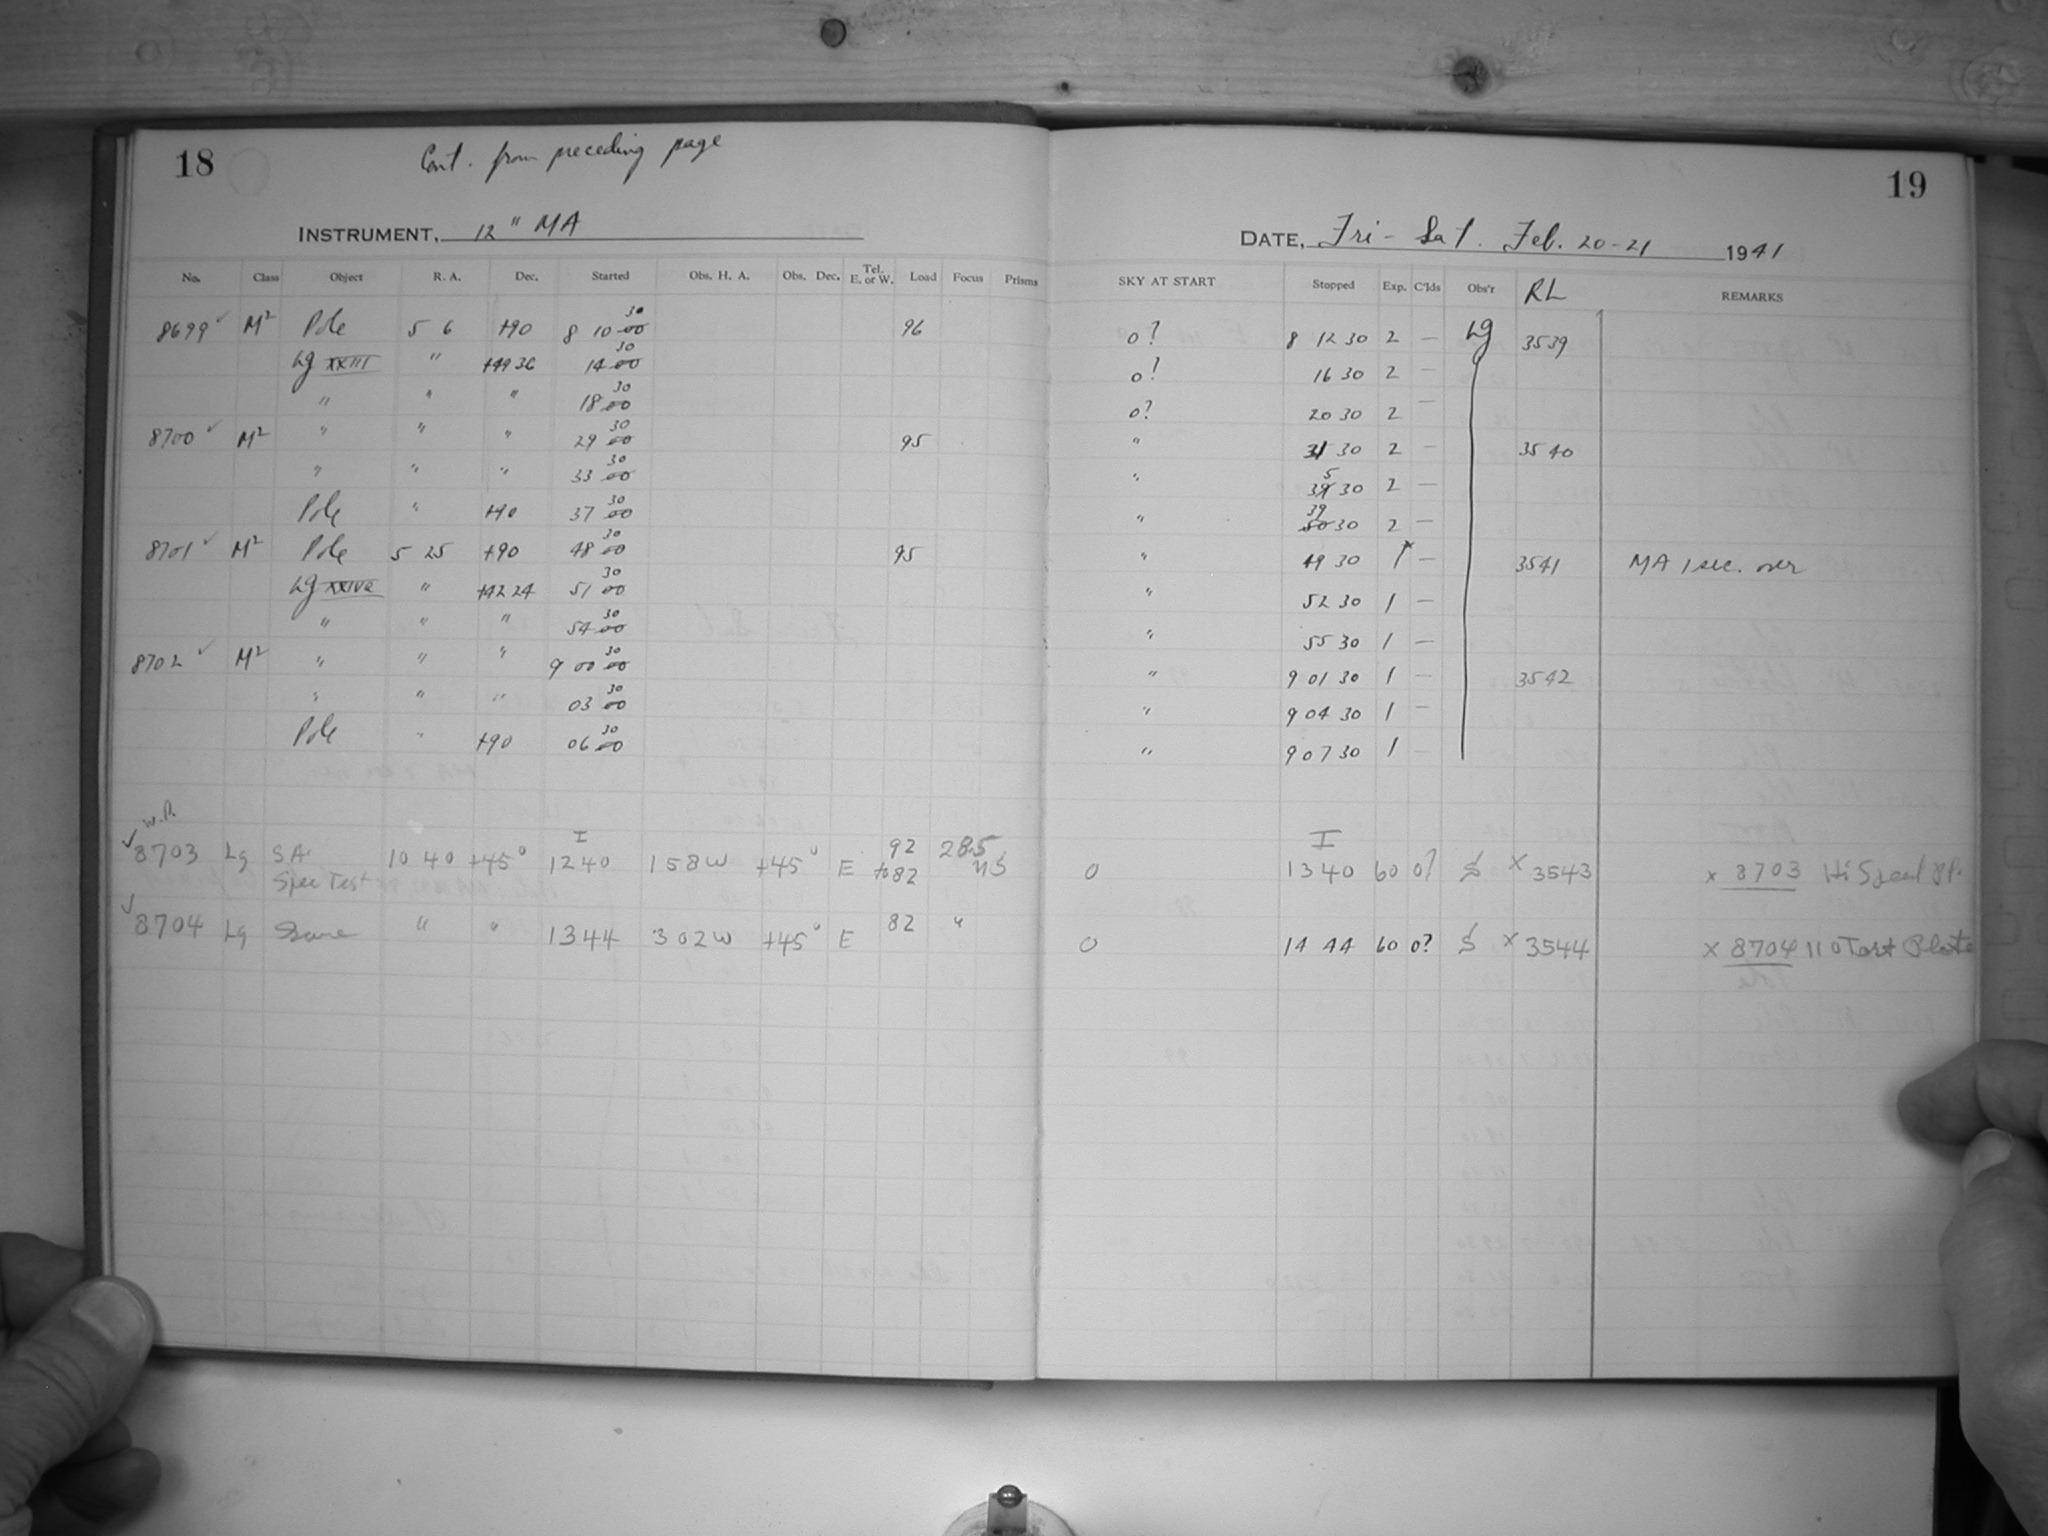 18
Cont. from preceding page
INSTRUMENT, 12" MA
No. Class Object R. A. Dec. Started Obs. H. A. Obs. Dec. Tel. E. or W. Load Focus Prisms
8699 ✓ M² Pole 5 6 +90 8 10 00 30 96
Lg XXIII " +49 36 14 00 30
" " " 18 00 30
8700 ✓ M² " " " 29 00 30 95
" " " 33 00 30
Pole " +90 37 00 30
8701 ✓ M² Pole 5 25 +90 48 00 30 95
Lg " +42 24 51 00 30
" " " 54 00 30
8702 ✓ M² " " " 9 00 00 30
" " " 03 00 30
Pole " +90 06 00 30
W.P.
✓ 8703 Lg SA. Spec Test 10 40 +45° I 12 40 1 58 W +45° E 92 to 82 28.5
✓ 8704 Lg Same " " 13 44 3 02 W +45° E 82 "
19
DATE, Fri - Sat. Feb. 20-21 1941
SKY AT START Stopped Exp. C'lds Obs'r RL REMARKS
0? 8 12 30 2 — Lg 3539
0! 16 30 2 —
0? 20 30 2 —
" 31 30 2 — 3540
" 39 5 30 2 —
" 50 39 30 2 —
" 49 30 1* — 3541 MA 1 sec. over
" 52 30 1 —
" 55 30 1 —
" 9 01 30 1 — 3542
" 9 04 30 1 —
" 9 07 30 1 —
I
0 13 40 60 0? S × 3543 × 8703 Hi Speed Pl.
0 14 44 60 0? S × 3544 × 8704 Plate